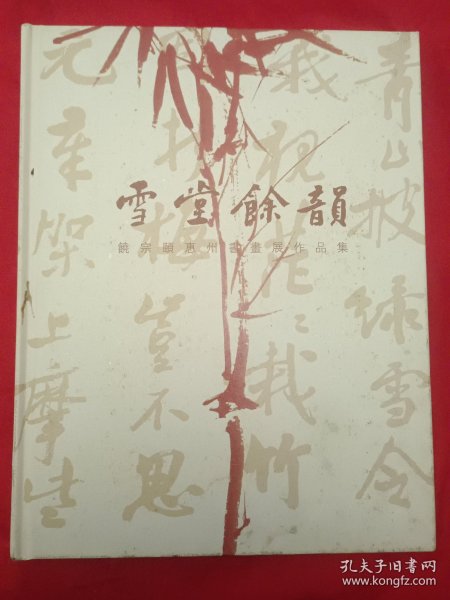 雪堂餘韻
饒宗頤惠州書畫展作品集
青山披綠雪令
栽竹
梅豈不思
元章架上摩
孔夫子旧书网
www.kongfz.com